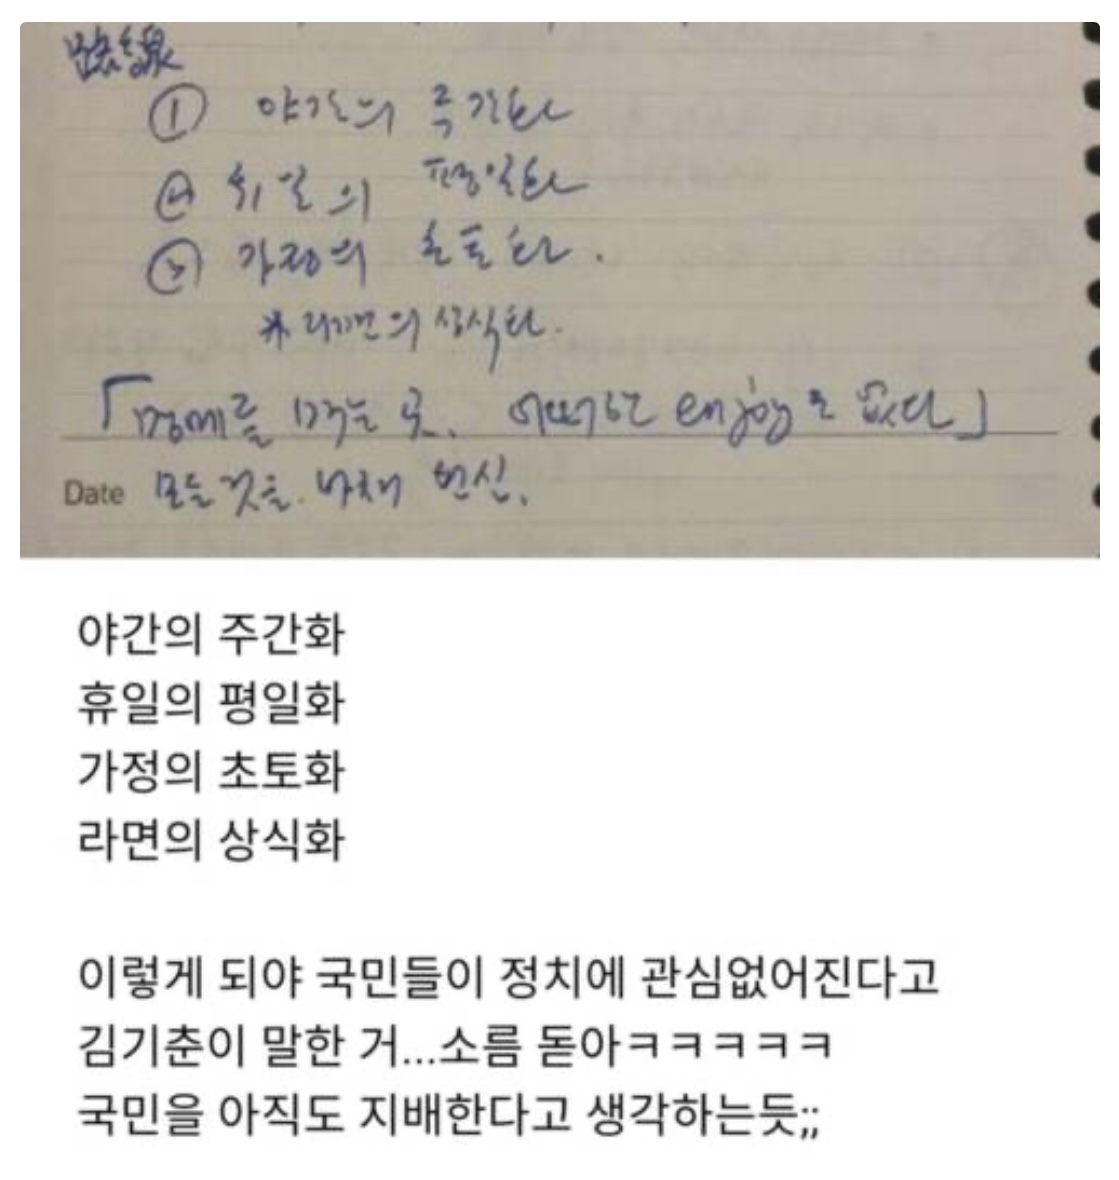 ① 야간의 주간화
② 휴일의 평일화
③ 가정의 초토화.
※ 라면의 상식화.
「명예를 먹는 곳. 어떠한 영향도 없다」
Date 모든 것을 바쳐 헌신.
야간의 주간화
휴일의 평일화
가정의 초토화
라면의 상식화
이렇게 되야 국민들이 정치에 관심없어진다고
김기춘이 말한 거...소름 돋아ㅋㅋㅋㅋㅋ
국민을 아직도 지배한다고 생각하는듯;;